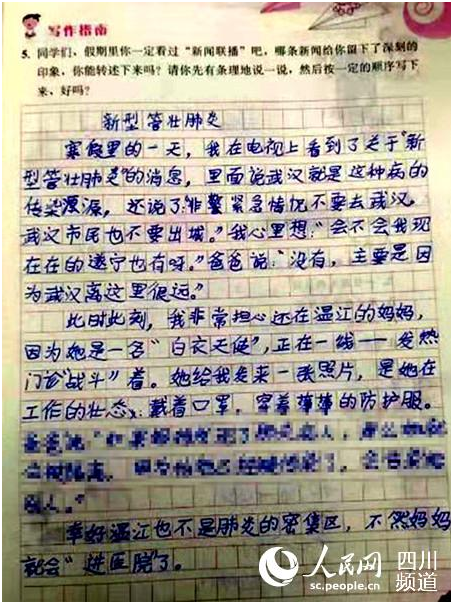 写作指南
5. 同学们，假期里你一定看过“新闻联播”吧，哪条新闻给你留下了深刻的
印象，你能转述下来吗？请你先有条理地说一说，然后按一定的顺序写下
来，好吗？
新型管壮肺炎
寒假里的一天，我在电视上看到了关于“新
型管壮肺炎”的消息，里面说武汉就是这种病的
传染源源，还说了：“非警紧急情忧不要去武汉，
武汉市民也不要出城。”我心里想：“会不会我现
在在的遂宁也有呀。”爸爸说：“没有，主要是因
为武汉离这里很远。”
此时此刻，我非常担心还在温江的妈妈，
因为她是一名“白衣天使”，正在一线——发热
门诊“战斗”着。她给我发来一张照片，是她在
工作的壮态：戴着口罩，穿着棒棒的防护服。
幸好温江也不是肺炎的密集区，不然妈妈
就会“进医院了。
人民网 四川
sc.people.cn 频道